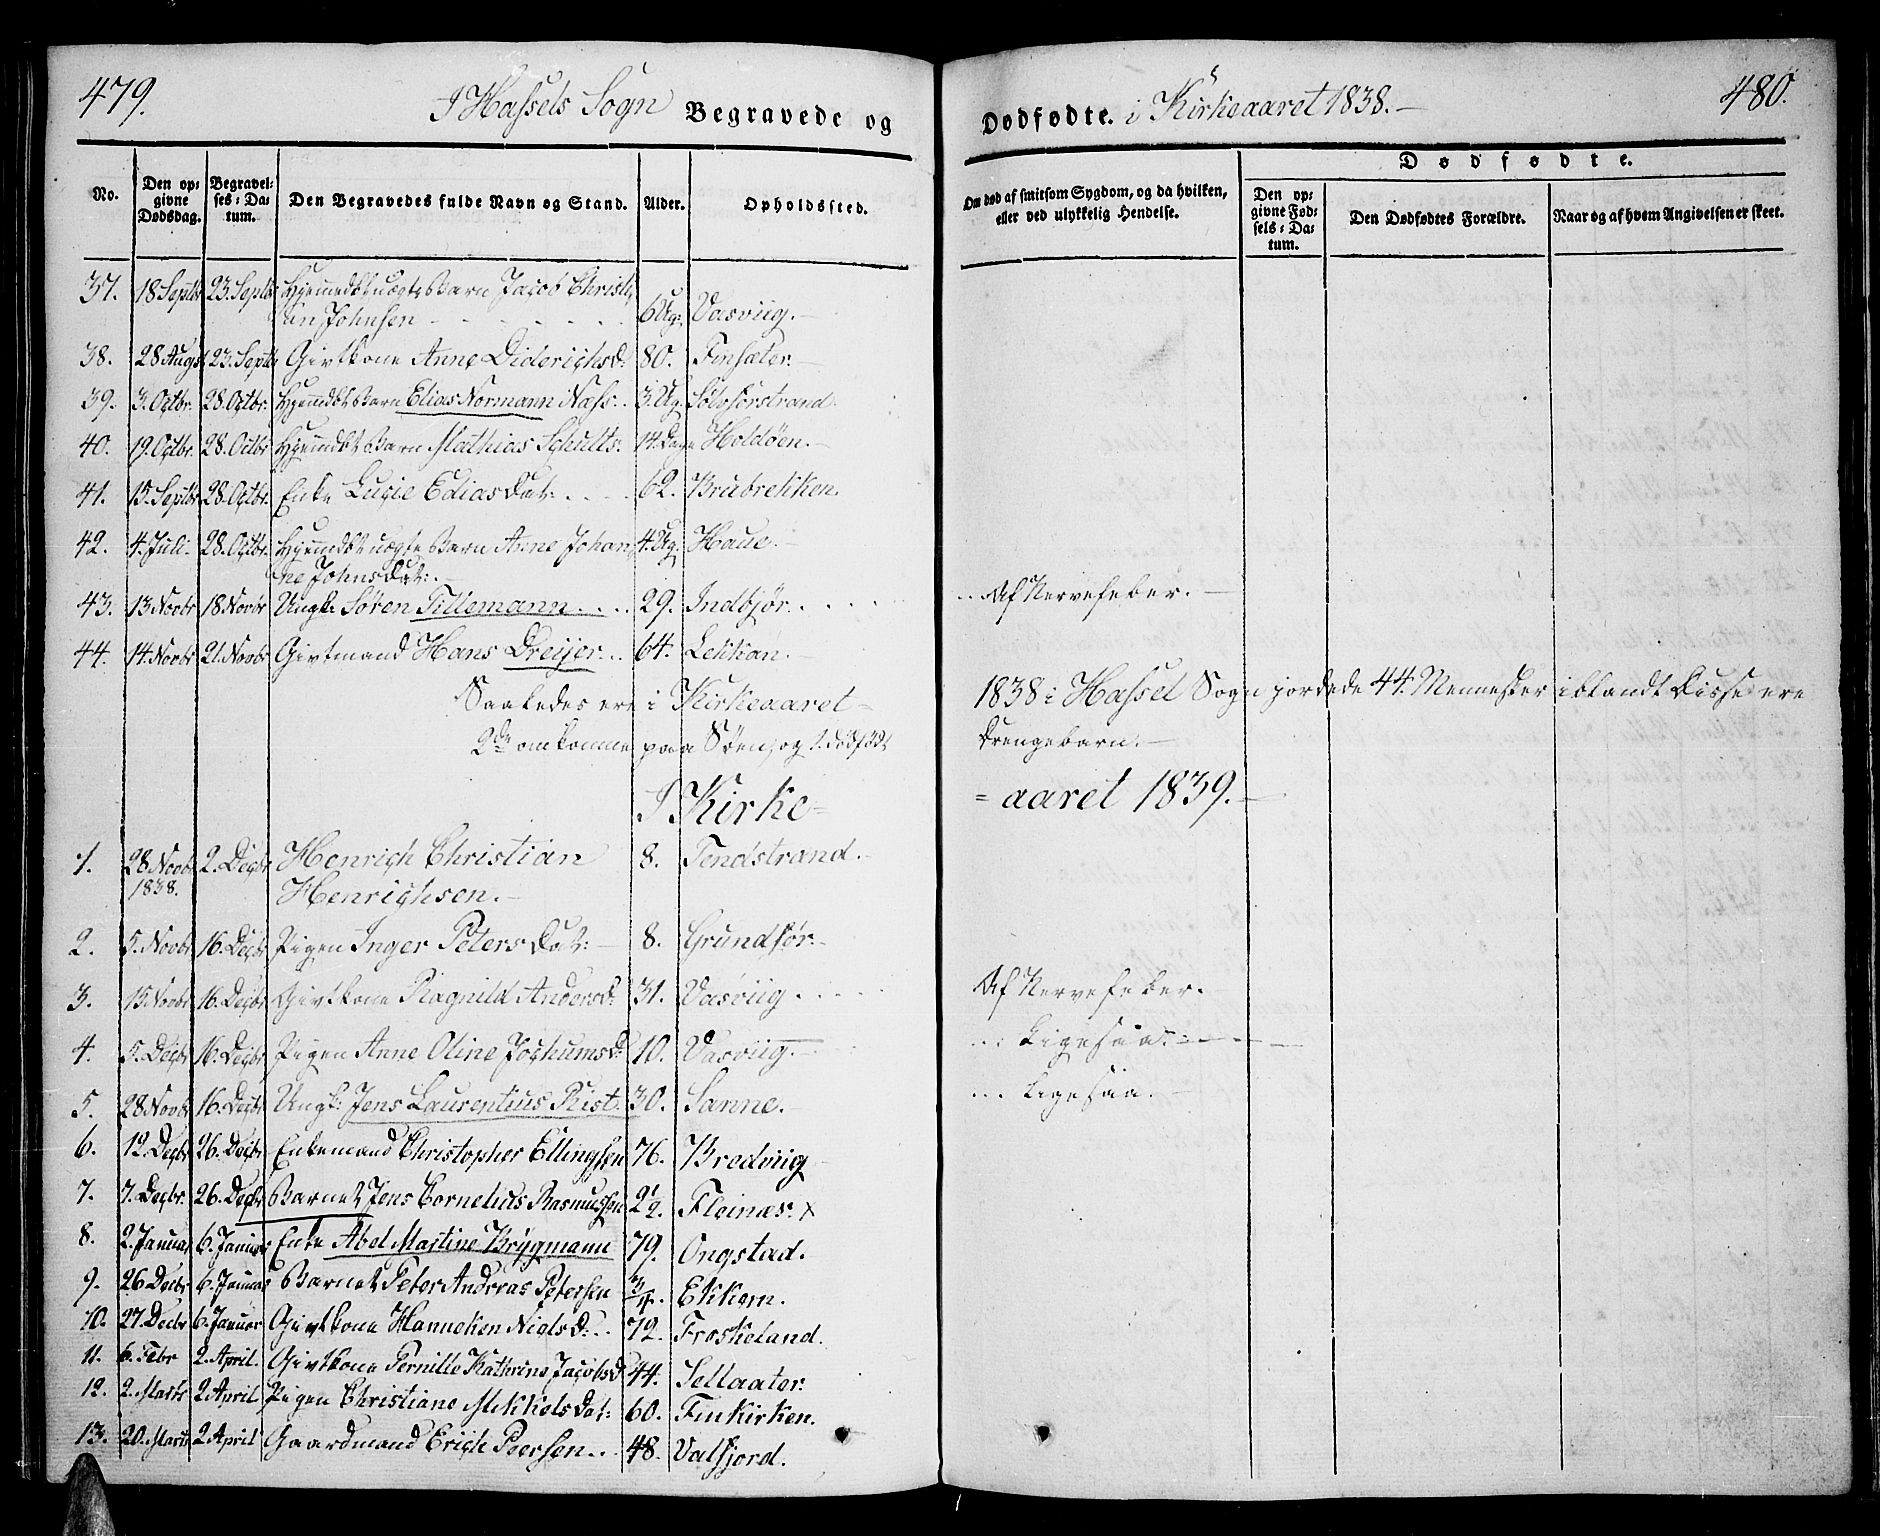 479.
I Hassels Sogn Begravede og
Dødfødte. i Kirkeaaret 1838.
480.
No.
Den opgivne Dødsdag.
Begravelses-Datum.
Den Begravedes fulde Navn og Stand.
Alder.
Opholdssted.
Om død af smitsom Sygdom, og da hvilken, eller ved ulykkelig Hendelse.
Dødfødte.
Den opgivne Fødsels-Datum.
Den Dødfødtes Forældre.
Naar og af hvem Angivelsen er skeet.
37. 18 Septbr 23. Septbr Hjemmedøbt uægte Barn Jacob Christi
an Johnsen 6 Ug: Vasviig.
38. 28 August 23. Septbr Givtkone Anne Diderichsd: 80. Finsæter.
39. 3. Octbr. 28. Octbr. Hjemdøbt Barn Elias Normann Næss. 3. Ug. Sølsforstrand.
40. 19. Octbr. 28. Octbr Hjemdøbt Barn Mathias Schults. 14. Dage Holdøen.
41. 15. Septbr 28. Octbr. Enke Lucie Edias Dat: 62. Brubrekken.
42. 4. Juli. 28. Octbr. Hjemdøbt uægte Barn Anne Johan
ne Johnsdat: 4. Ug. Haue.
43. 13 Novbr 18 Novbr Ungk: Søren Tillemann 29. Indbjør. Af Nervefeber.
44. 14. Novbr 21. Novbr Givtmand Hans Dreyer. 64. Lekkan.
Saaledes ere i Kirkeaaret 1838 i Hassel Sogn jordede 44. Mennesker iblandt disse ere
2de omkomne paa Søen, og 1. dødfødt Drengebarn.
I Kirke= =aaret 1839.
1. 28 Novbr 2. Decbr Henrich Christian 8. Tendstrand.
1838. Henrichsen.
2. 5. Novbr 16. Decbr Pigen Inger Peters Dat: 8. Grundfør.
3. 15 Novbr 16. Decbr Givtkone Ragnild Andersd: 31. Vasviig. Af Nervefeber.
4. 5. Decbr 16. Decbr Pigen Anne Oline Jochumsd: 10. Vasviig. Ligesaa.
5. 28 Novbr 16. Decbr Ungk: Jens Laurentius Rist. 30. Sanne. Ligesaa.
6. 12. Decbr 26. Decbr Enkemand Christopher Ellingsen 76. Bredviig
7. 7. Decbr. 26. Decbr Barnet Jens Cornelius Rasmussen 2½ Fleinæs. x
8. 2. Januar 6. Januar Enke Abel Martine Brygmann 79. Ongstad.
9. 26 Decbr 6. Januar Barnet Peter Andreas Petersen ¾. Ekkern.
10. 27. Decbr 6. Januar Givtkone Hanneken Nielsd: 72. Froskeland.
11. 6. Febr 2. April. Givtkone Pernille Kathrine Jacobsd 44. Sellaater.
12. 2. Marts 2 April Pigen Christiane Mikkels Dat: 60. Finkirken.
13. 20. Marts 2 April Gaardmand Erich Peersen. 48. Valfjord.